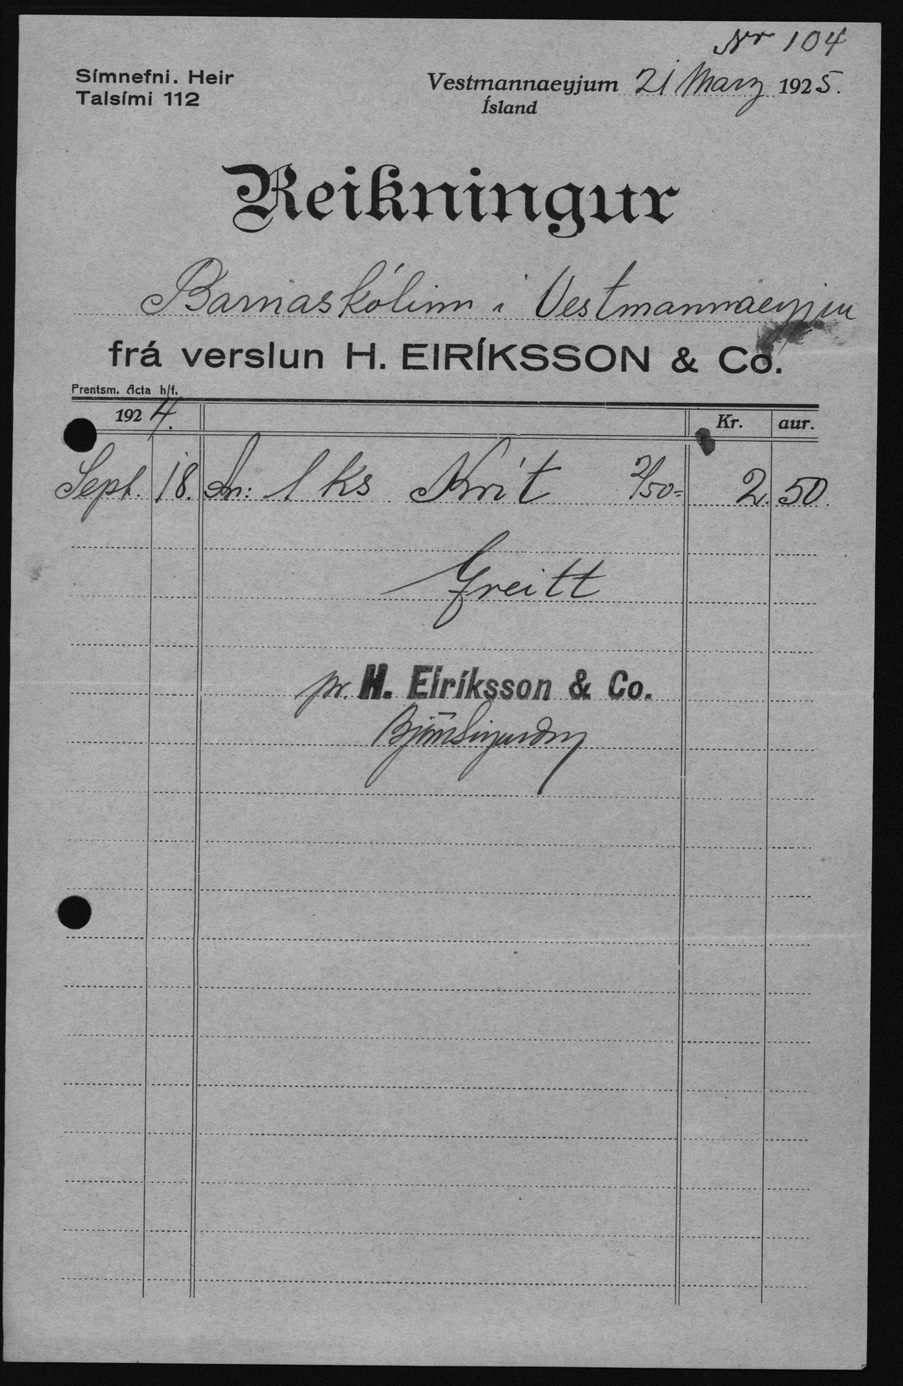 Nr 104
Símnefni. Heir
Talsími 112
Vestmannaeyjum 21 Marz 1925.
Ísland
Reikningur
Barnaskólinn í Vestmannaeyjum
frá verslun H. EIRÍKSSON & Co.
Prentsm. Acta h/f.
1924. Kr. aur.
Sept. 18. An: 1 ks Krít 2/50= 2. 50
Greitt
pr. H. Eiríksson & Co.
Björn Sigurðsson